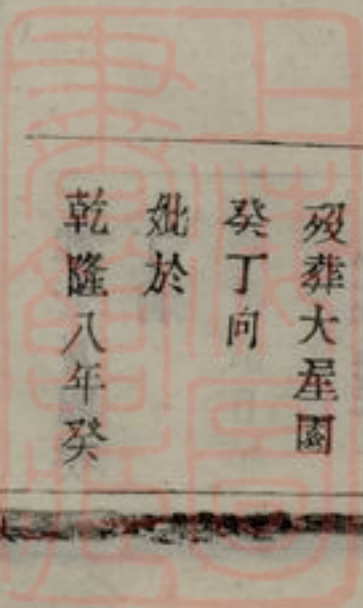 歿葬大星園
癸丁向
妣於
乾隆八年癸